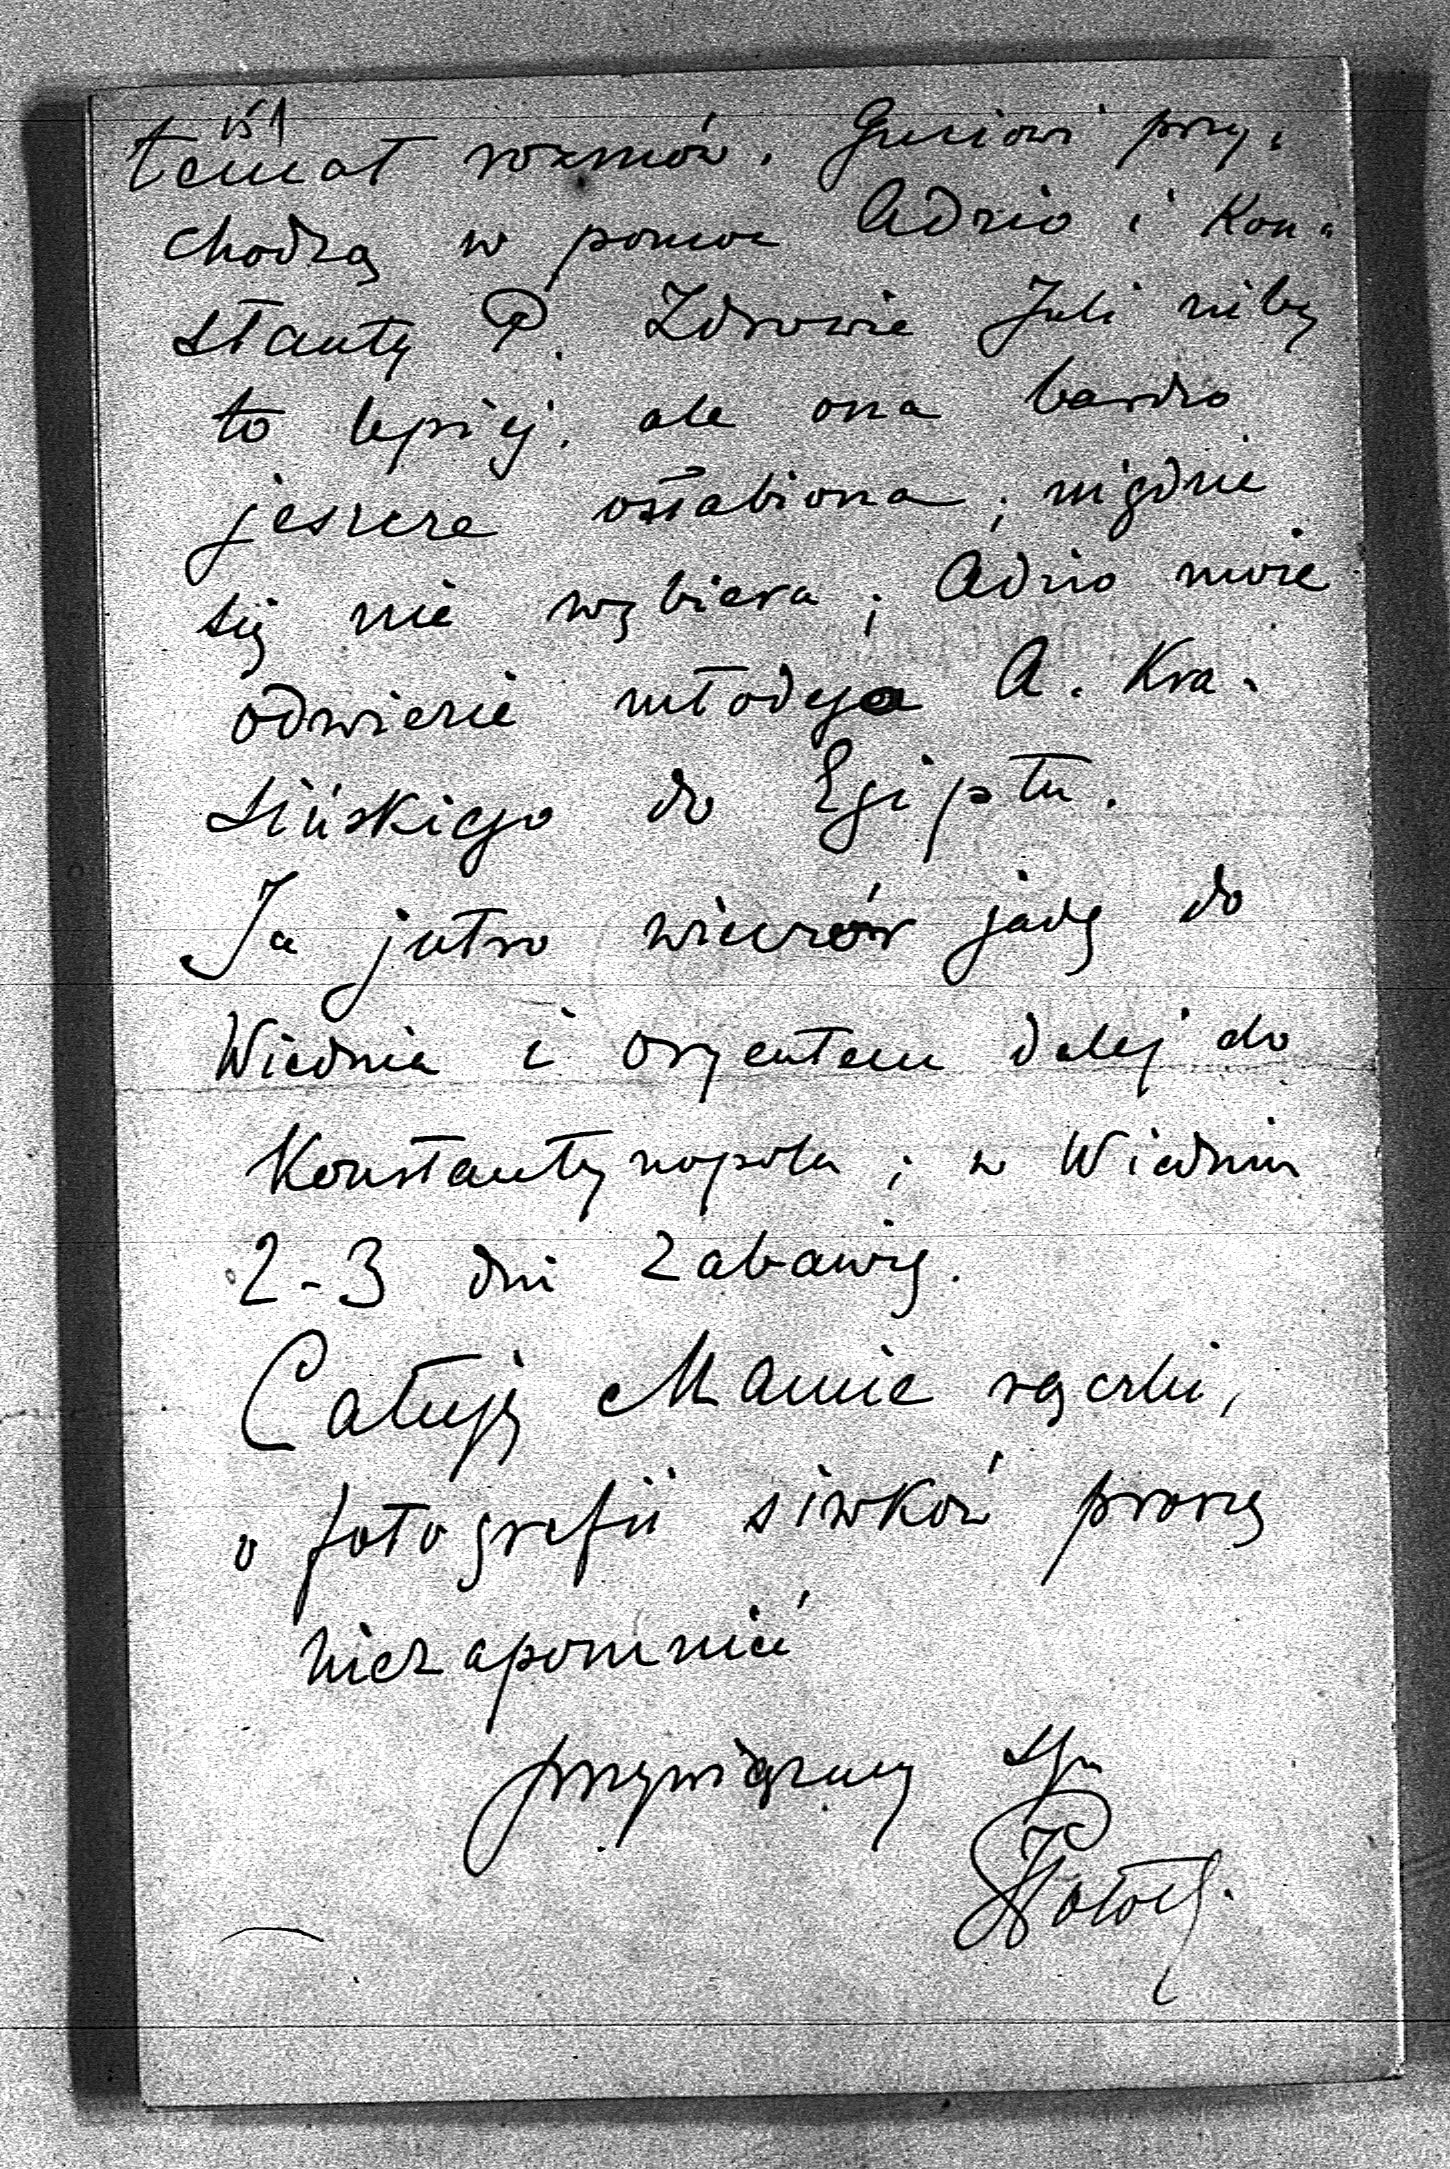 temat rozmów. Guciowi przy-
chodzą w pomoc Adzio i Kon-
stanty P. Zdrowie Juli niby
to lepiej, ale ona bardzo
jeszcze osłabiona, nigdzie
się nie wybiera; Adzio może
odwiezie młodego A. Kra-
sińskiego do Egiptu.
Ja jutro wieczór jadę do
Wiednia i Oryentem dalej do
Konstantynopola; w Wiedniu
2-3 dni zabawię.
Całuję Mamie rączki,
o fotografii siwków proszę
niezapomnieć
przywiązany syn
Potocki